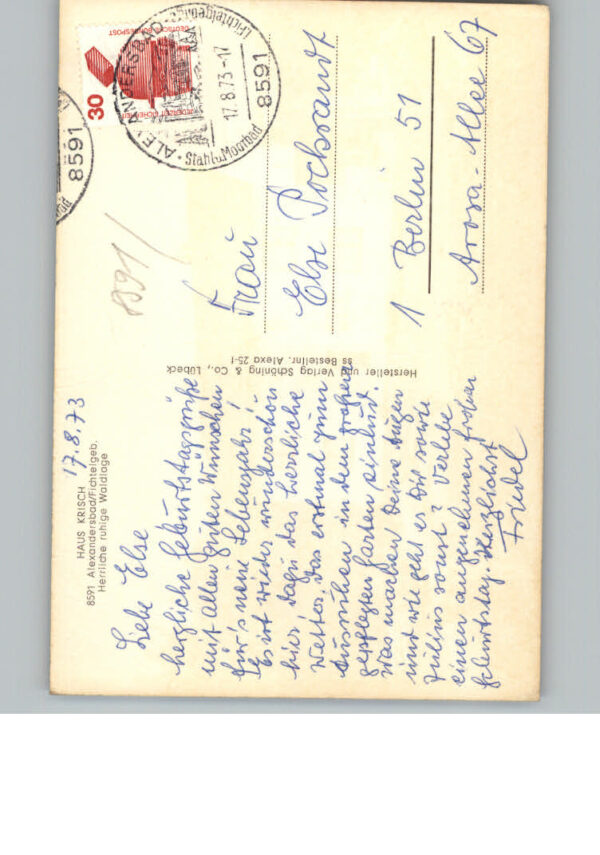 HAUS KRISCH
8591 Alexandersbad/Fichtelgeb.
Herrliche ruhige Waldlage
17.8.73
Liebe Else
herzliche Geburtstagsgrüße
mit allen guten Wünschen
für's neue Lebensjahr!
Es ist wieder wunderschön
hier. Dazu das herrliche
Wetter. Das erstmal zum
Ausruhen in dem großen
gepflegten Garten einlud.
Was machen Deine Augen
und wie geht es Dir sowie
Julius sonst? Verlebe
einen angenehmen frohen
Geburtstag. Herzlichst
Friedel
Hersteller und Verlag Schöning & Co., Lübeck
ss Bestellnr. Alexa 25-f
8591
ALEXANDERSBAD
(Fichtelgebirge)
17.8.73-17
8591
Stahl u Moorbad
30
DEUTSCHE BUNDESPOST
JEDERZEIT SICHERHEIT
8591
Frau
Else Pockrandt
1 Berlin 51
Arosa-Allee 67